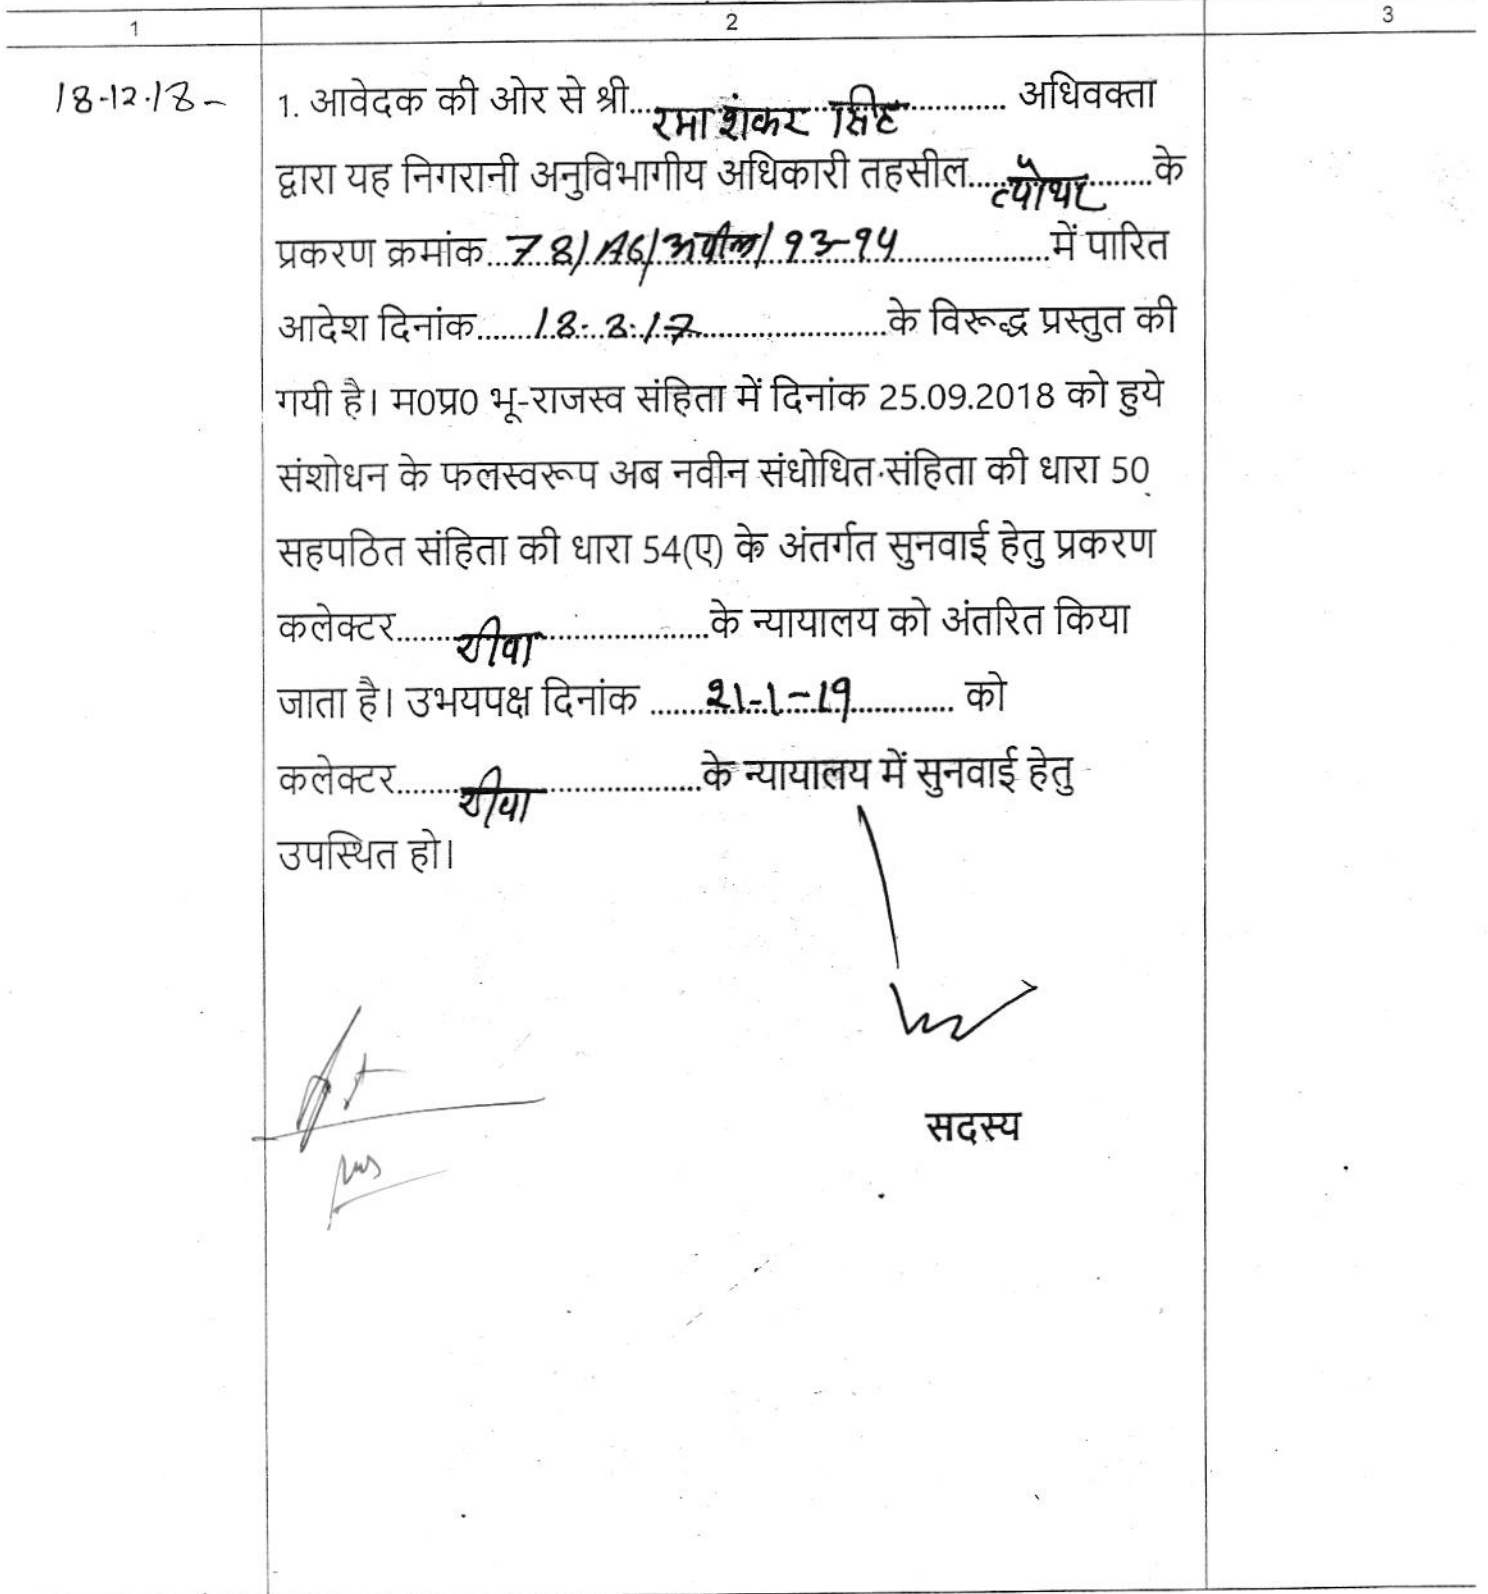 1 2 3
18-12-18-
1. आवेदक की ओर से श्री...रमाशंकर सिंह............ अधिवक्ता
द्वारा यह निगरानी अनुविभागीय अधिकारी तहसील.....त्योंथर.....के
प्रकरण क्रमांक..78/A6/अपील/93-94..............में पारित
आदेश दिनांक......18.8.17..................के विरूद्ध प्रस्तुत की
गयी है। म0प्र0 भू-राजस्व संहिता में दिनांक 25.09.2018 को हुये
संशोधन के फलस्वरूप अब नवीन संधोधित संहिता की धारा 50
सहपठित संहिता की धारा 54(ए) के अंतर्गत सुनवाई हेतु प्रकरण
कलेक्टर.......रीवा..................के न्यायालय को अंतरित किया
जाता है। उभयपक्ष दिनांक ......21-1-19........... को
कलेक्टर.......रीवा..................के न्यायालय में सुनवाई हेतु
उपस्थित हो।
सदस्य